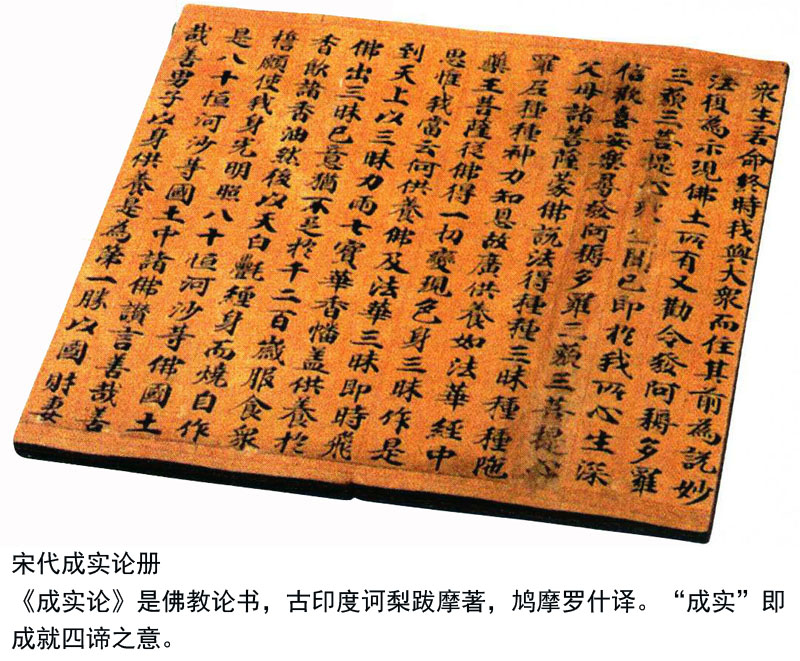 衆生若命終時我與大衆而住其前為説妙
法復為示現佛土所有又勸令發阿耨多羅
三藐三菩提心聞已即於我所心生深
信歡喜安樂尋發阿耨多羅三藐三菩提心
父母諸菩薩蒙佛説法得種種三昧種種陁
羅尼種種神力知恩故廣供養如法華經中
藥王菩薩從佛得一切變現色身三昧作是
思惟我當云何供養佛及法華三昧即時飛
到天上以三昧力雨七寳華香幡盖供養於
佛出三昧已意猶不足於千二百歳服食衆
香飲諸香油然後以天白氎纒身而燒自作
擔願使我身光明照八十恒河沙等佛國土
是八十恒河沙等國土中諸佛讃言善哉善
哉善男子以身供養是為第一勝以國財妻
宋代成实论册
《成实论》是佛教论书，古印度诃梨跋摩著，鸠摩罗什译。“成实”即
成就四谛之意。